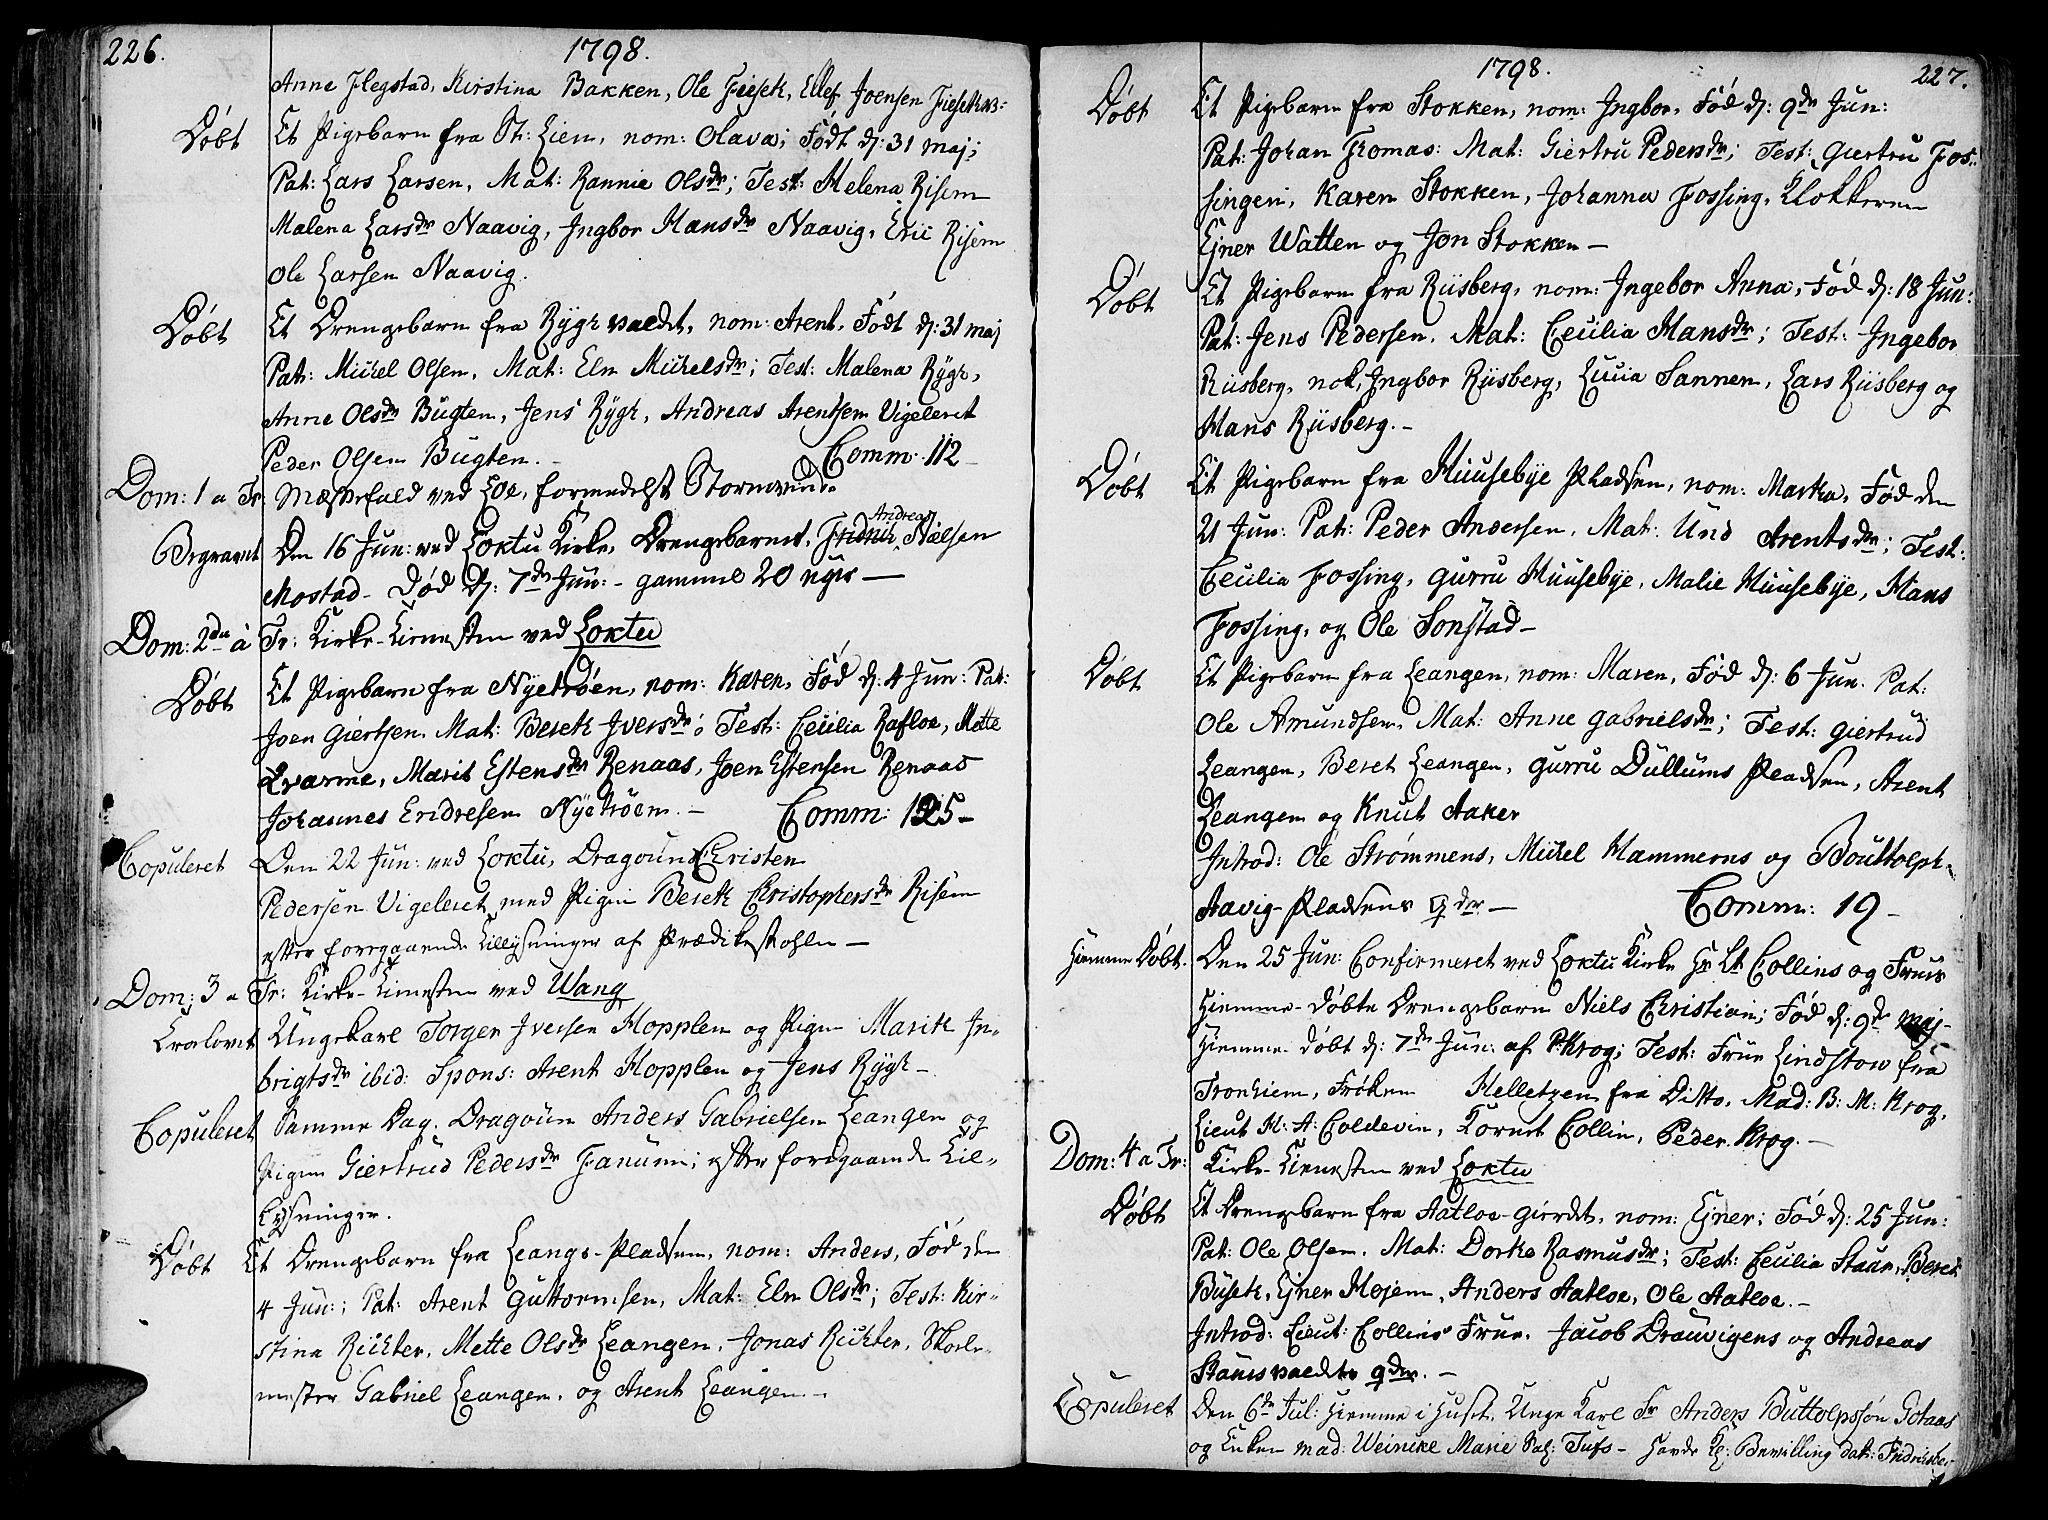 226.
1798.
Anne Flegstad, Kirstina Bakken, Ole Fiisek, Ellef Joensen
Døbt Et Pigebarn fra St: Lien, nom: Olava; Født d: 31 Maj;
Pat: Lars Larsen, Mat: Rannie Olsdr; Test: Helena Risem
Malena Larsdr Naavig, Ingbor Hansdr Naavig, Eric Risem
Ole Larsen Naavig.
Døbt Et Drengebarn fra Rygh valdet, nom: Arent, Født d: 31 maj
Pat: Michel Olsen, Mat: Eln Michelsdr; Test: Malena Rygh,
Anne Olsdr Bugten, Jens Rygh, Andreas Arentsen Vigeleret
Peder Olsen Bugten. – Comm: 112 –
Dom: 1 a Tr Messefald ved Loe, formedelst Stormvind.
Begravet Den 16 Jun: ved Loktu Kirke, Drengebarnet, Andreas Nielsen
Mostad – Død d: 7de Jun: – gammel 20 uger —
Dom: 2den à Tr: Kirke-Tienesten ved Loktu
Døbt Et Pigebarn fra Nyetrøen, nom: Karen, Fød d: 4 Jun: Pat:
Joen Giertsen. Mat: Bereth Iversdr; Test: Cecilia Rafloe, Mette
Qvarme, Marit Estensdr Renaas, Joen Estensen Renaas
Johannes Endresen Nyetrøen. – Comm: 125 –
Copuleret Den 22 Jun: ved Loktu, Dragoun Christen
Pedersen Vigeleret med Pigen Bereth Christophersdr Risem
efter foregaaende Tillysninger af Prædikestohlen —
Dom: 3 a Tr: Kirke-Tienesten ved Wang
Trolovet Ungekarl Torger Iversen Hopplen og Pigen Marith In-
brigtsdr ibid: Spons: Arent Hopplen og Jens Rygh –
Copuleret Samme Dag. Dragoun Anders Gabrielsen Leangen og
Pigen Giertrud Pedersdr Fanum; efter foregaaende Til-
lysninger.
Døbt Et Drengebarn fra Leangs-Pladsen, nom: Anders, Fød den
4 Jun:; Pat: Arent Guttormsen, Mat: Eln Olsdr; Test: Kir-
stina Richter, Mette Olsdr Leangen, Jonas Richter, Skole-
mester Gabriel Leangen, og Arent Leangen. –
1798.
227.
Døbt Et Pigebarn fra Stokken, nom: Ingbor, Fød d: 9de Jun:
Pat: Johan Thomas: Mat: Giertru Pedersdr; Test: Giertru Fos-
singen, Karen Stokken, Johanna Fossing, Klokkeren
Ejner Watten og Jon Stokken –
Døbt Et Pigebarn fra Riisberg, nom: Ingebor Anna, Fød d: 18 Jun:
Pat: Jens Pedersen. Mat: Cecilia Hansdr; Test: Ingebor
Riisberg, nok Ingbor Riisberg, Lucia Sannen, Lars Riisberg og
Hans Riisberg. –
Døbt Et Pigebarn fra Huusebye Pladsen, nom: Martha, Fød den
21 Jun: Pat: Peder Andersen, Mat: Und Arentsdr; Test:
Cecilia Fossing, Gurru Huusebye, Malie Huusebye, Hans
Fossing, og Ole Sonstad –
Døbt Et Pigebarn fra Leangen, nom: Maren, Fød d: 6 Jun. Pat:
Ole Amundsen, Mat: Anne Gabrielsdr; Test: Giertrud
Leangen, Beret Leangen, Gurru Dullums Pladsen, Arent
Leangen og Knut Aaker
Introd: Ole Strømmens, Michel Hammerns og Bouttolph
Aavig-Pladsens qder — Comm: 19 –
Hiemme Døbt. Den 25 Jun: Confirmeret ved Loktu Kirke Hr Lt Collins og Frues
Hiemme-Døbte Drengebarn Niels Christian; Fød d: 9de Maj –
Hiemme-døbt d: 7de Jun: af P: Krog; Test: Frue Lindstow fra
Tronhiem, Frøken Helletzen fra Ditto, Mad: B: M: Krog,
Lieut H: A: Coldevin, Kornet Collin, Peder Krog. –
Dom: 4 a Tr: Kirke-Tienesten ved Loktu
Døbt Et Drengebarn fra Aatloe-gierdet, nom: Ejner; Fød d: 25 Jun:
Pat: Ole Olsen. Mat: Dorthe Rasmusdr; Test: Cecilia Staur, Beret
Buseth, Ejner Mojem, Anders Aatloe, Ole Aatloe. –
Introd: Lieut: Collins Frue. Jacob Drauvigens og Andreas
Stauesvaldets qder. –
Copuleret Den 6te Jul: Hiemme i Huset. Unge Karl Sr Anders Buttolpssøn Gotaas
og Enken Mad: Weincke Marie Sal: Tufs – havde Kgl: Bevilling dat: Fridrichsber-